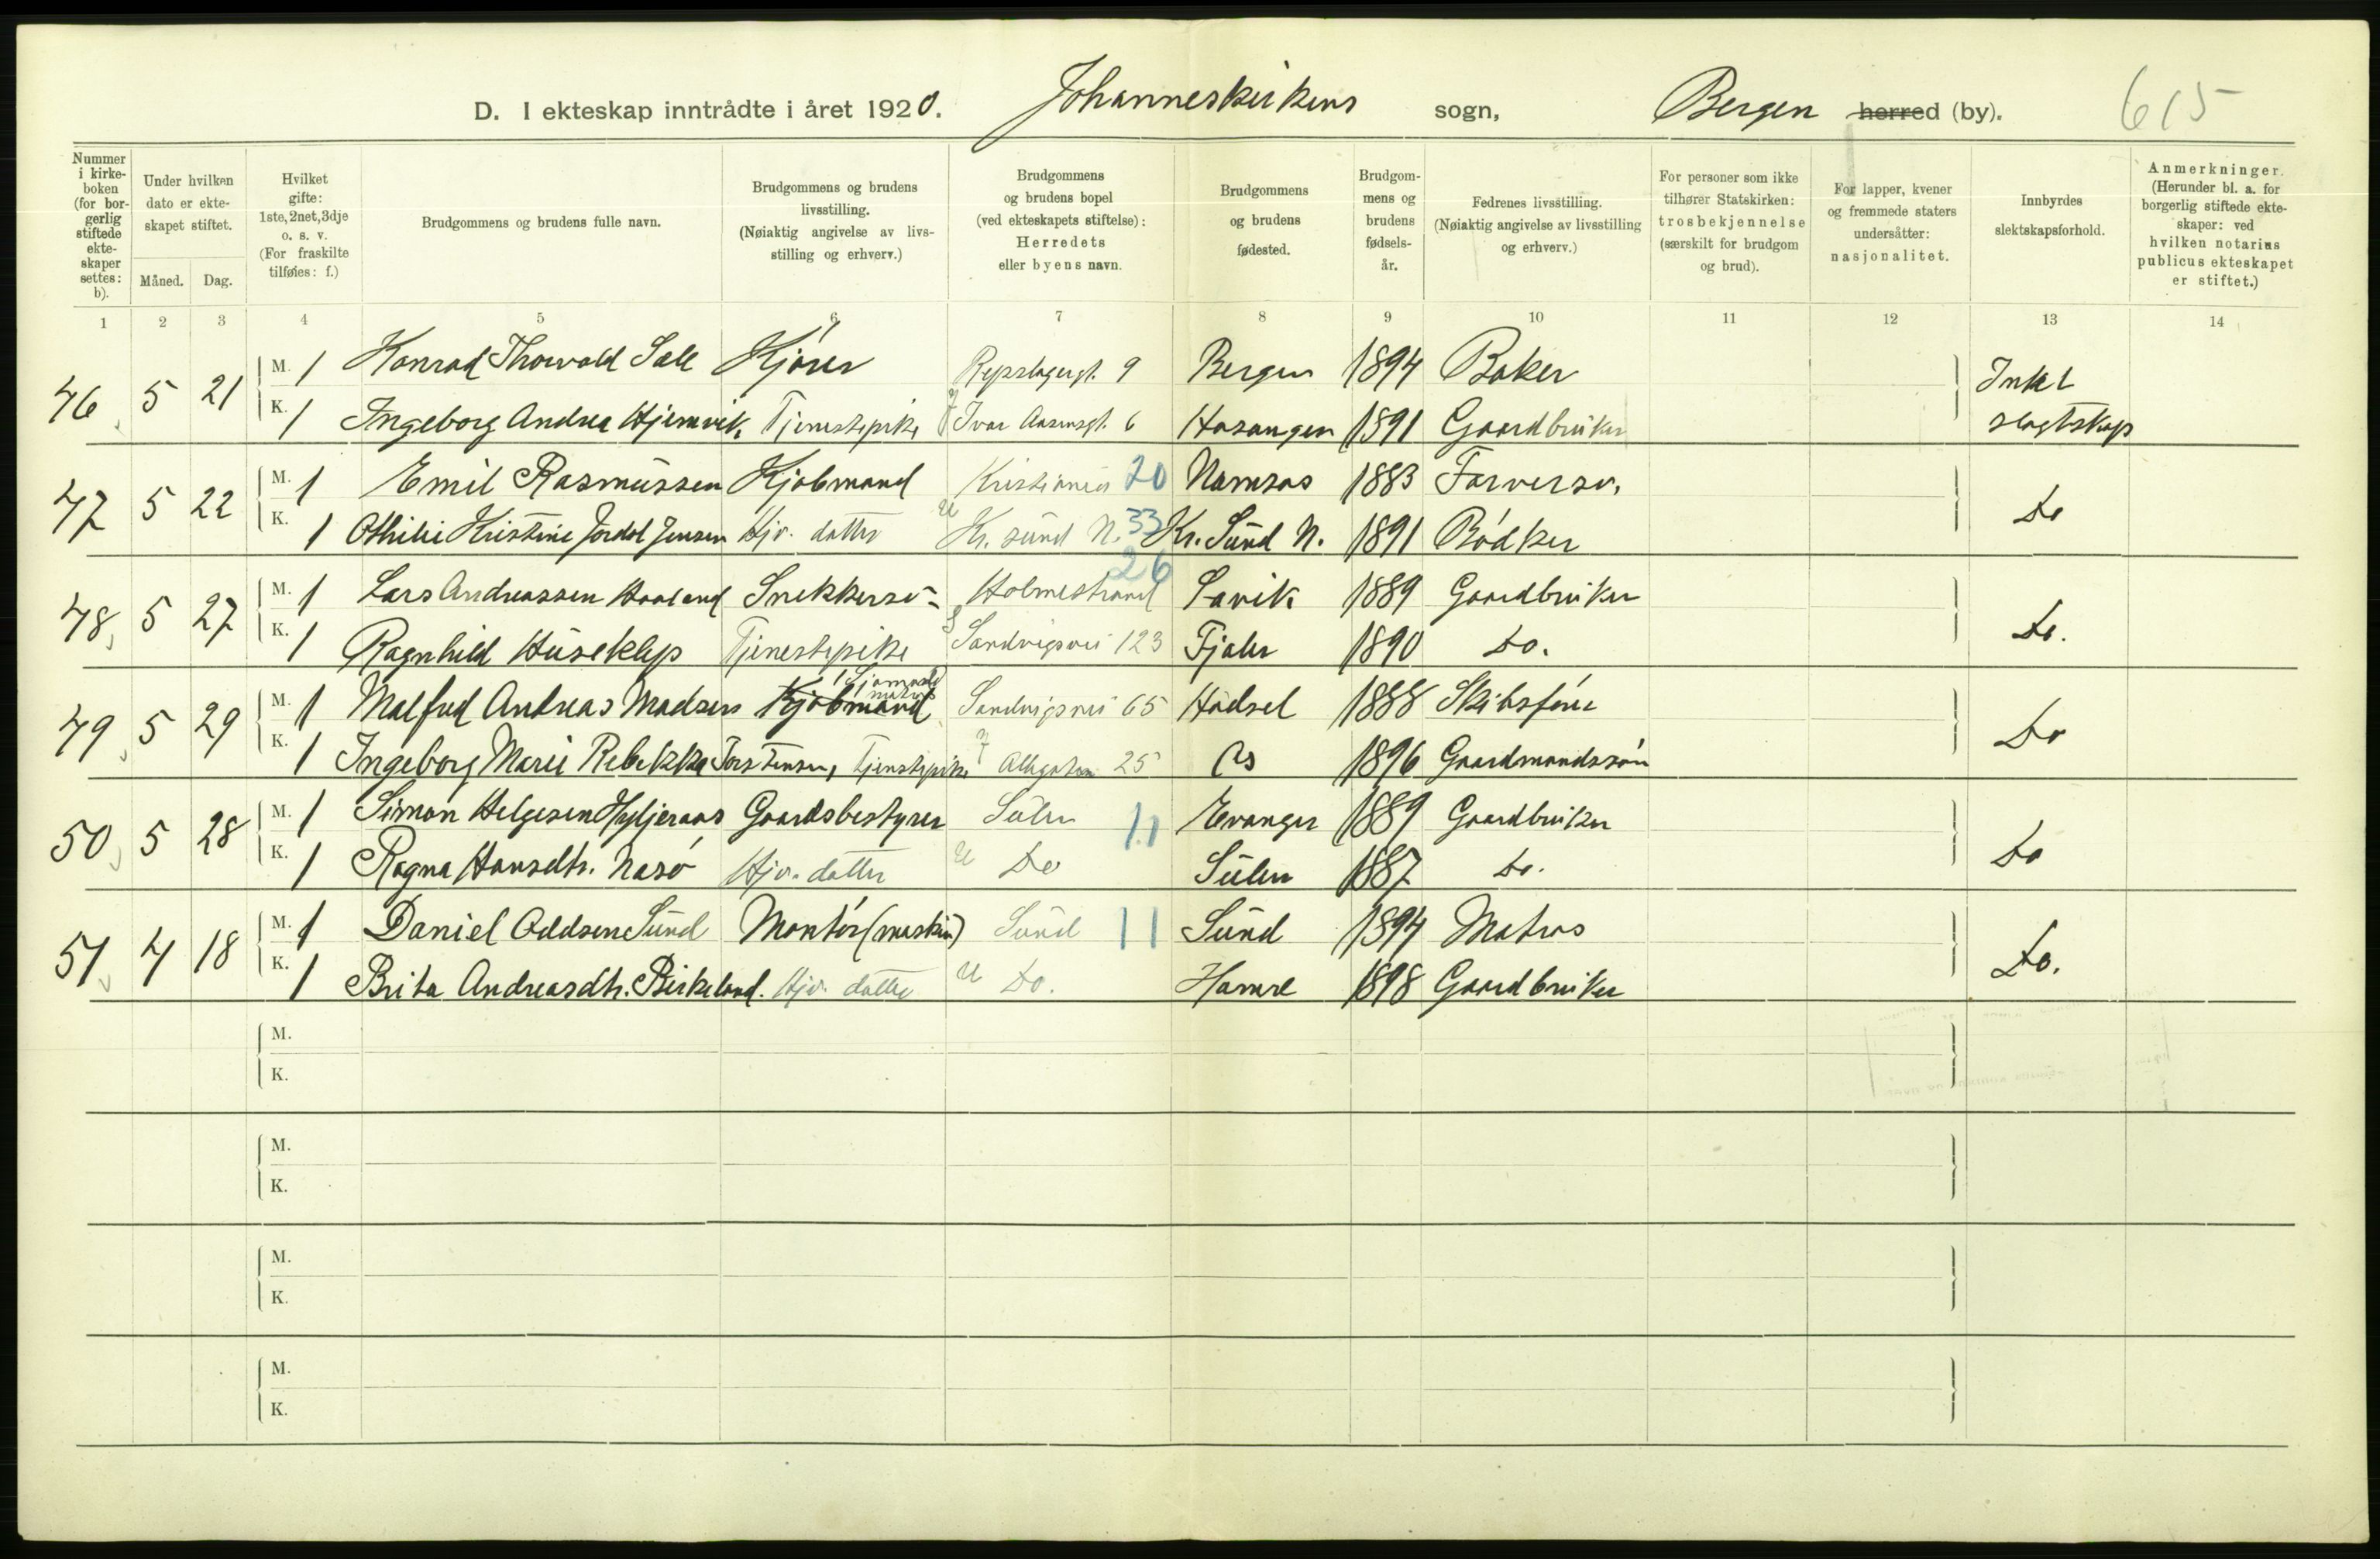 D. I ekteskap inntrådte i året 1920. Johanneskirkens sogn, Bergen herred (by). 615
Nummer i kirkeboken (for borgerlig stiftede ekteskaper settes: b).
Under hvilken dato er ekteskapet stiftet.
Måned. Dag.
Hvilket gifte: 1ste, 2net, 3dje o. s. v. (For fraskilte tilføies: f.)
Brudgommens og brudens fulle navn.
Brudgommens og brudens livsstilling. (Nøiaktig angivelse av livsstilling og erhverv.)
Brudgommens og brudens bopel (ved ekteskapets stiftelse): Herredets eller byens navn.
Brudgommens og brudens fødested.
Brudgommens og brudens fødselsår.
Fedrenes livsstilling. (Nøiaktig angivelse av livsstilling og erhverv.)
For personer som ikke tilhører Statskirken: trosbekjennelse (særskilt for brudgom og brud).
For lapper, kvener og fremmede staters undersåtter: nasjonalitet.
Innbyrdes slektskapsforhold.
Anmerkninger. (Herunder bl. a. for borgerlig stiftede ekteskaper: ved hvilken notarius publicus ekteskapet er stiftet.)
1 2 3 4 5 6 7 8 9 10 11 12 13 14
46 5 21 M. 1 Konrad Thorvald Sæle Kjører Repslagergt. 9 Bergen 1894 Baker Inkl slagtskap
K. 1 Ingeborg Andrea Hjemvik Tjenestepike Ivar Aasensgt. 6 Hosanger 1891 Gaardbruker
47 5 22 M. 1 Emil Rasmussen Kjøbmand Kristiania 20 Namsos 1883 Farversv. Do
K. 1 Othilie Kristine Jordal Jensen Hjv. datter U Kr. sund N. 33 Kr. Sund N. 1891 Bødker
48 5 27 M. 1 Lars Andreassen Haaland Snekkersv. Holmestrand 26 Lavik 1889 Gaardbruker Do.
K. 1 Ragnhild Huseklep Tjenestepike Sandvigsvei 123 Fjaler 1890 Do.
49 5 29 M. 1 Malfred Andreas Madsen Kjøbmand Sjømand matros Sandvigsvei 65 Hadsel 1888 Skibsfører Do
K. 1 Ingeborg Marie Rebekka Torstensen, Tjenstepike Allegaten 25 Os 1896 Gaardmandssøn
50 5 28 M. 1 Simon Helgesen Hyljeraas Gaardsbestyrer Sulen 11 Evanger 1889 Gaardbruker Do
K. 1 Ragna Hansdtr. Nasø Hjv. datter U Do Sulen 1887 Do.
51 4 18 M. 1 Daniel Oddsen Sund Montør (maskin) Sund 11 Sund 1894 Matros Do.
K. 1 Brita Andreasdtr. Birkeland. Hjv. datter U Do. Hamre 1898 Gaardbruker
M.
K.
M.
K.
M.
K.
M.
K.